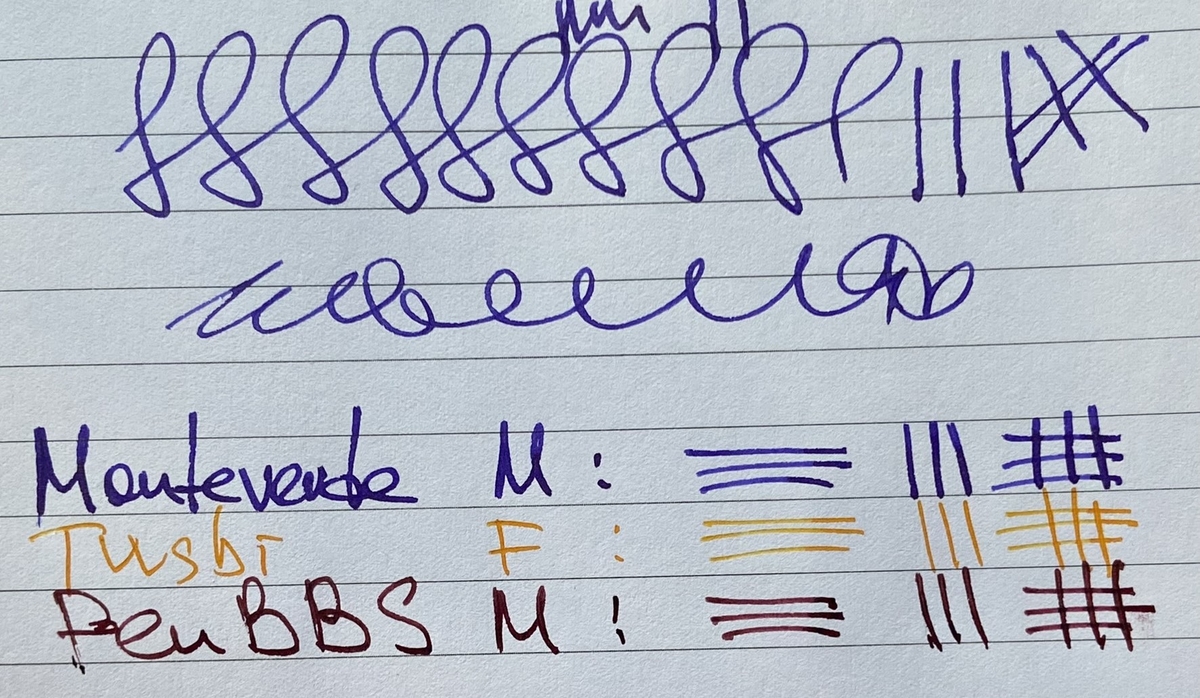 Monteverde M :
Twsbi F :
PenBBS M :